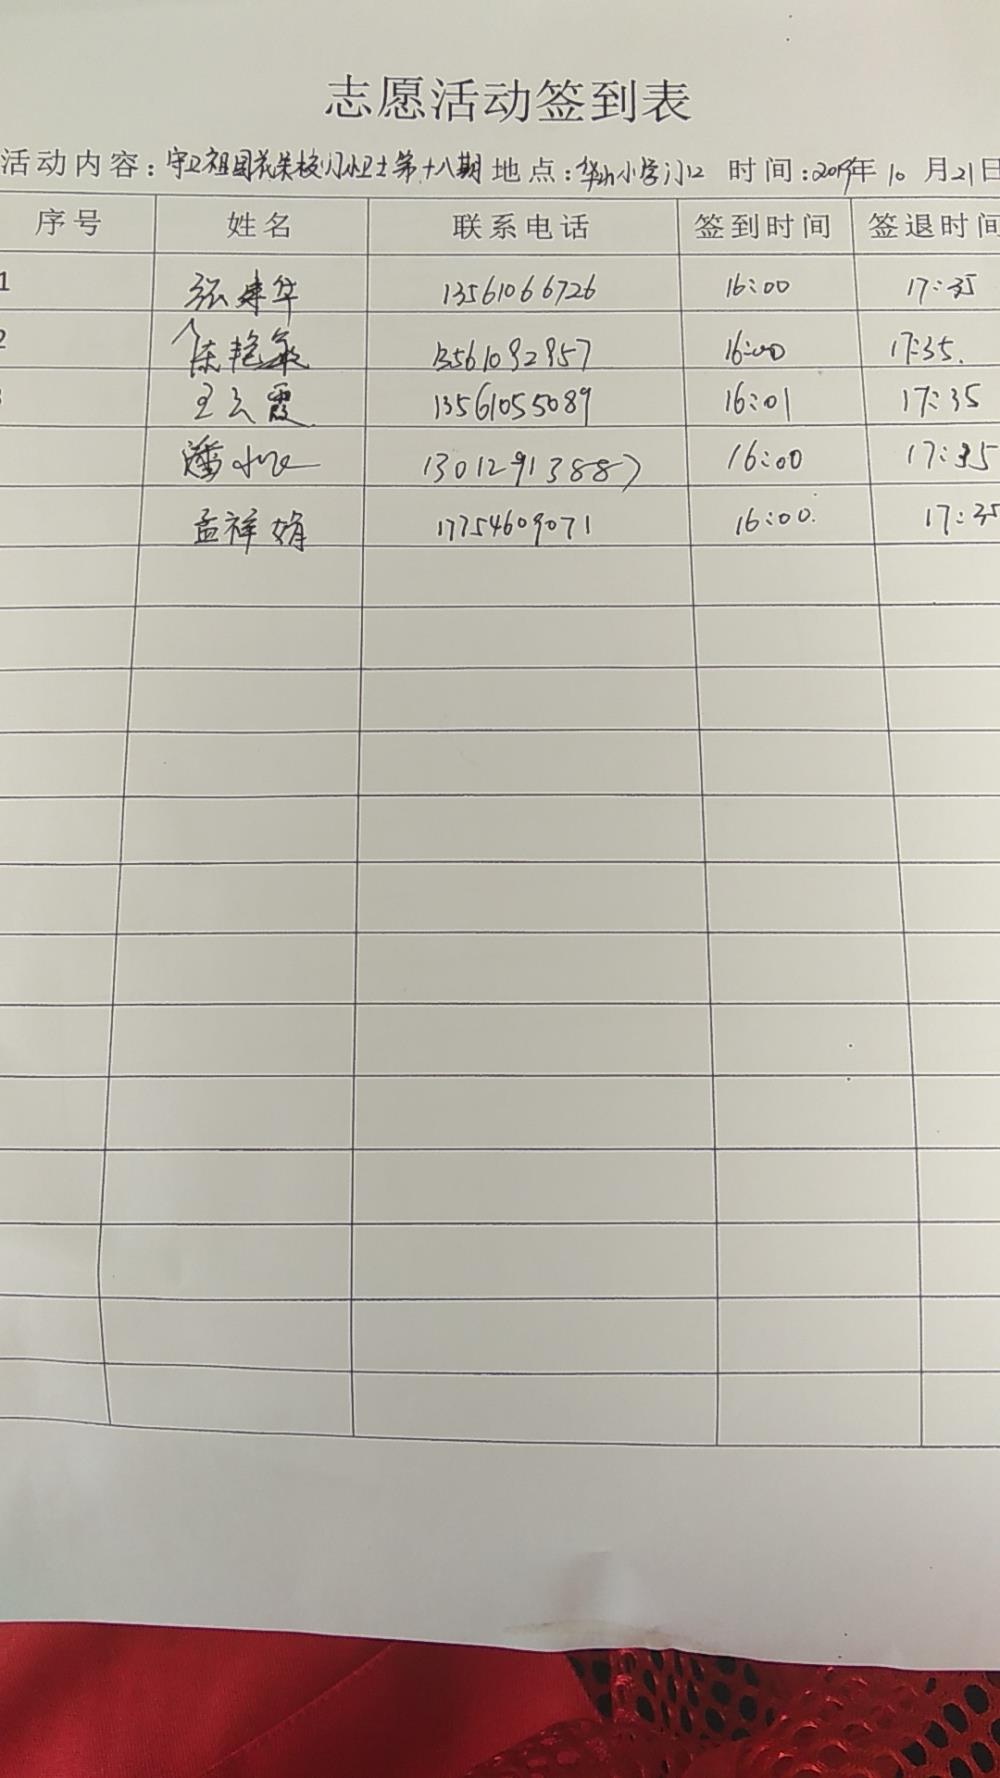 志愿活动签到表
活动内容：守卫祖国花朵校门小卫士第十八期 地点：小学门口 时间：2019年 10 月 21 日
序号 姓名 联系电话 签到时间 签退时间
1 张建华 13561066726 16:00 17:35
2 陈艳敏 13561092957 16:00 17:35.
王云霞 13561055089 16:01 17:35
潘 13012913887 16:00 17:35
孟祥娟 17754609071 16:00. 17:35